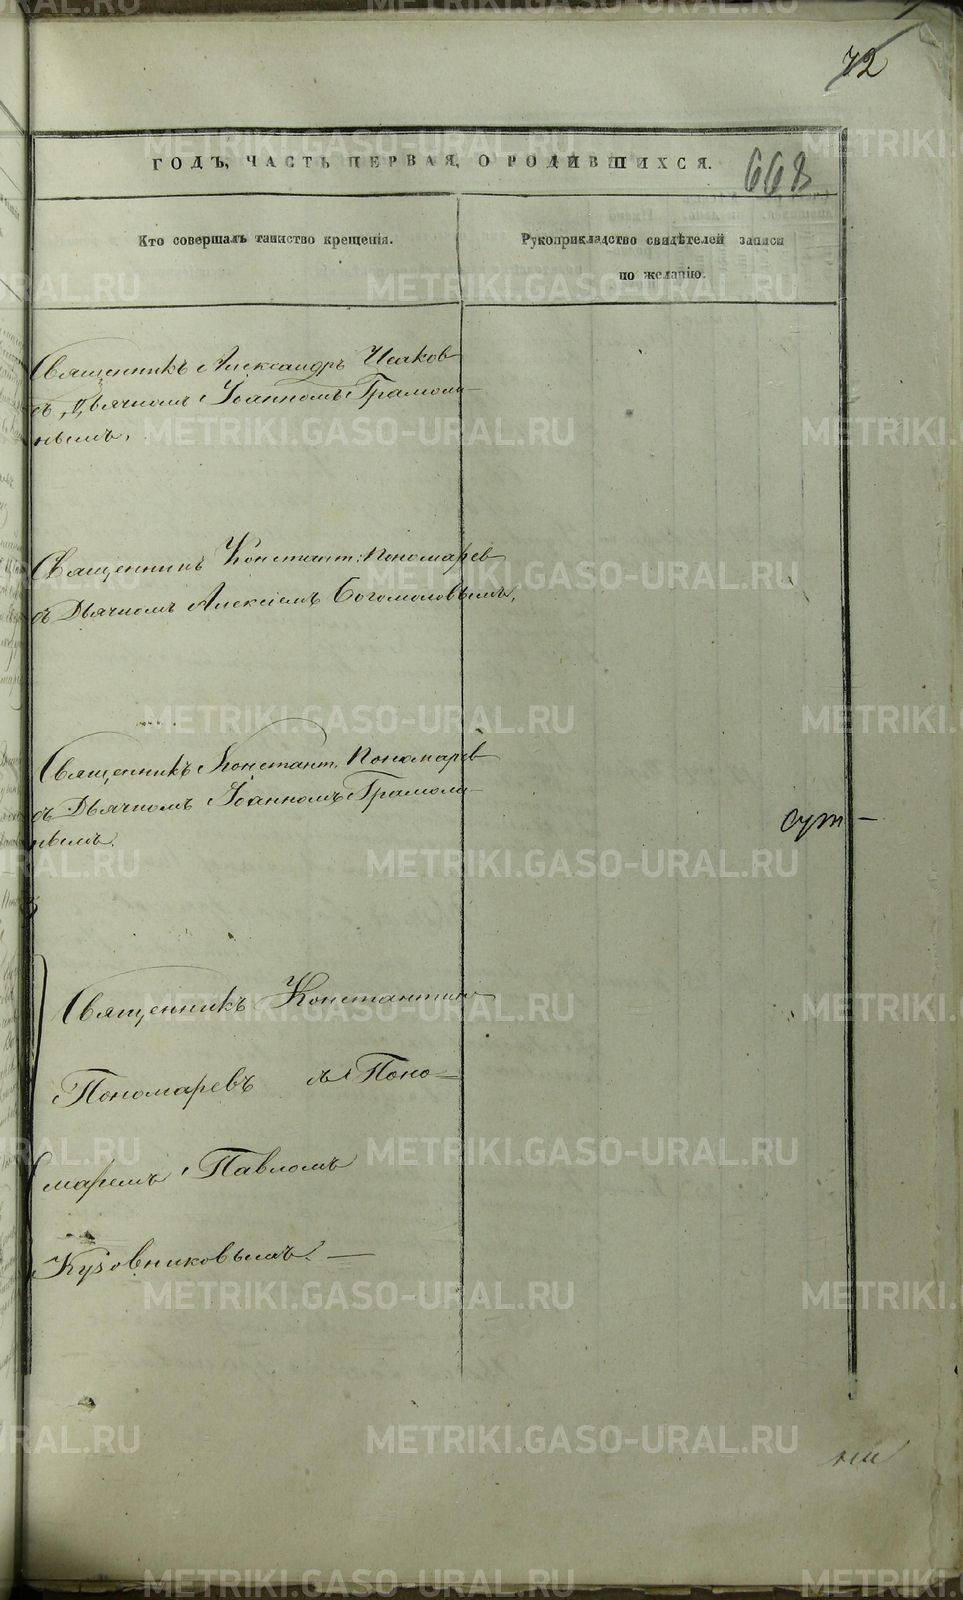 72
ГОДЪ, ЧАСТЬ ПЕРВАЯ, О РОДИВШИХСЯ.
668
Кто совершалъ таинство крещенія.
Рукоприкладство свидѣтелей записи
по желанію.
Священникъ Александръ Исаков
съ Дьячкомъ Іоанномъ Грамоли-
нымъ.
Священникъ Констант: Пономарев
съ Дьячкомъ Алексіемъ Богомоловымъ.
Священникъ Констант. Пономарев
съ Дьячкомъ Іоанномъ Грамоли-
нымъ.
Священникъ Константин
Пономаревъ съ Поно-
маремъ Павломъ
Кузовниковымъ. —
METRIKI.GASO-URAL.RU